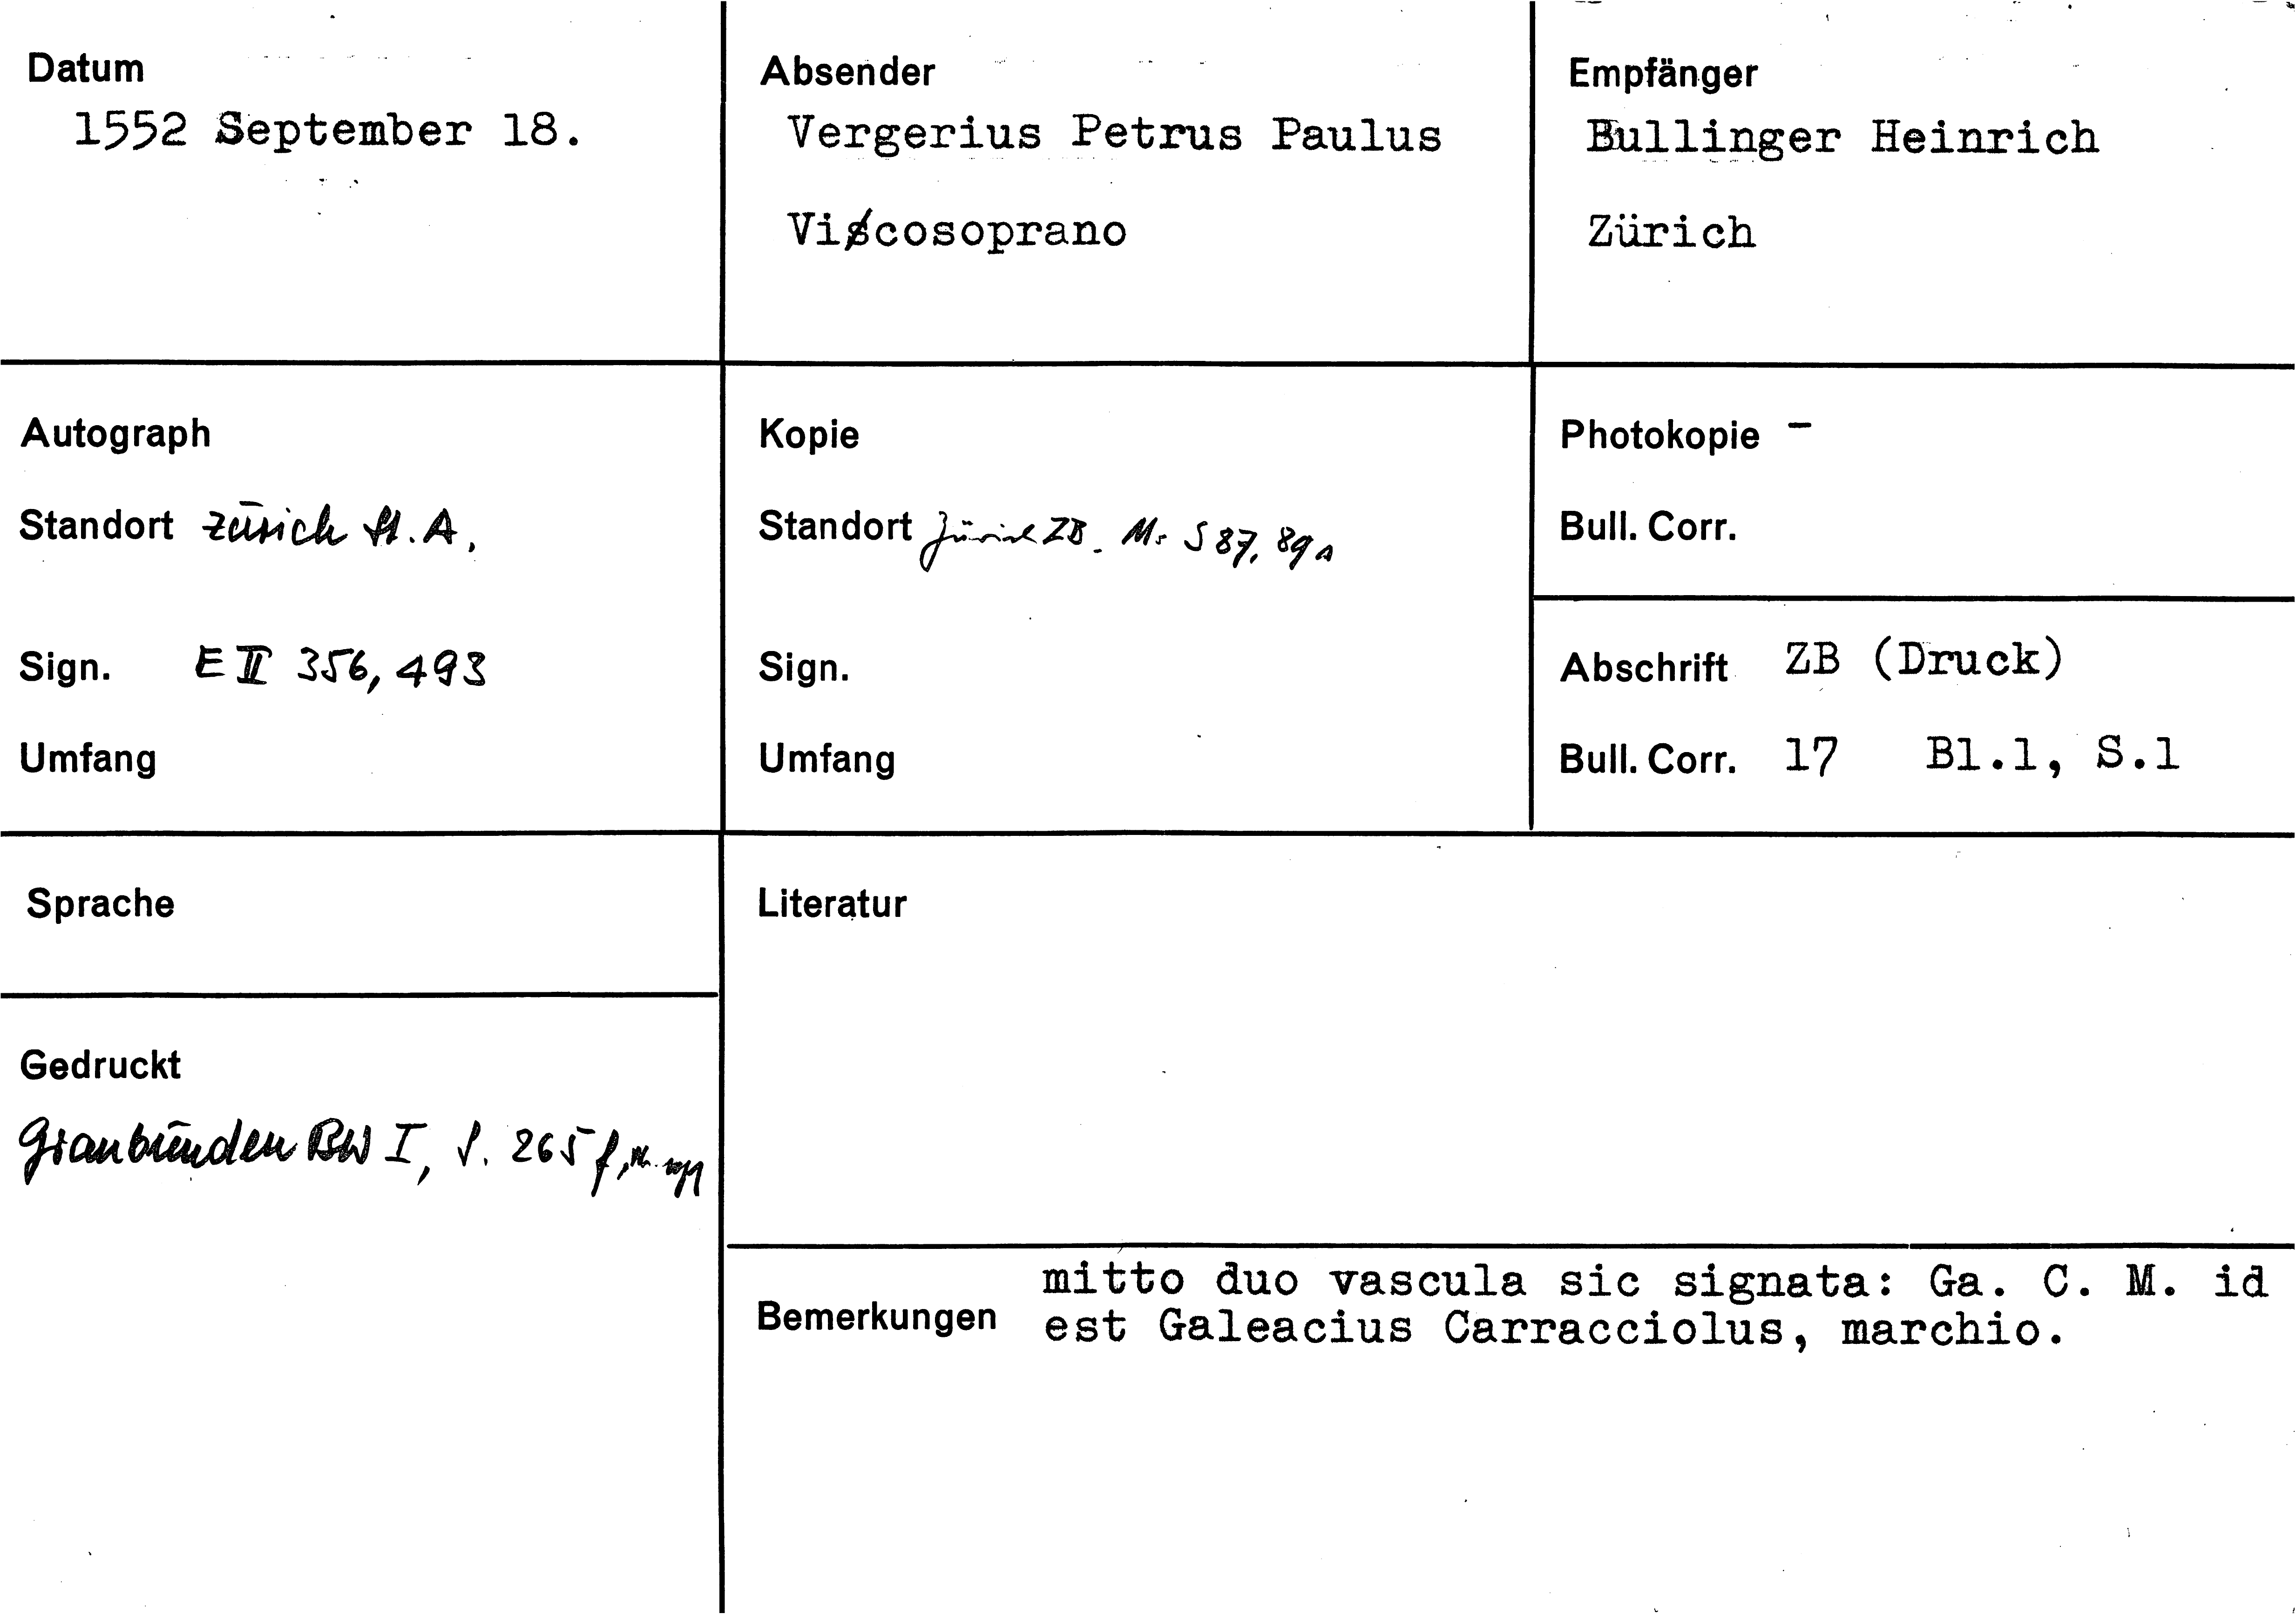 Datum
1552 September 18.
Absender
Vergerius Petrus Paulus
Vicosoprano
Empfänger
Bullinger Heinrich
Zürich
Autograph
Standort Zürich St.A.
Sign. E II 356, 493
Umfang
Kopie
Standort Zürich ZB. Ms S 87, 89
Sign.
Umfang
Photokopie -
Bull. Corr.
Abschrift ZB (Druck)
Bull. Corr. 17 Bl.1, S.1
Sprache
Gedruckt
Graubünden BW I, S. 265 f, Nr.
Literatur
Bemerkungen mitto duo vascula sic signata: Ga. C. M. id
est Galeacius Carracciolus, marchio.